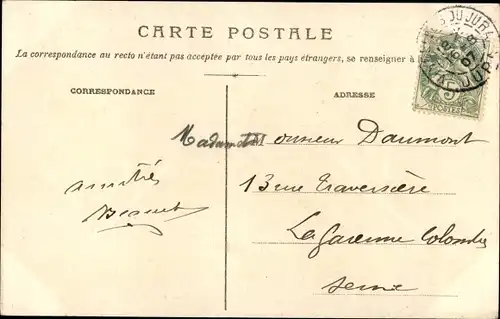 CARTE POSTALE
La correspondance au recto n'étant pas acceptée par tous les pays étrangers, se renseigner à
CORRESPONDANCE
ADRESSE
Madame et Monsieur Daumont
amitiés
13 rue Traversière
La Garenne Colombes
Seine
5
POSTES